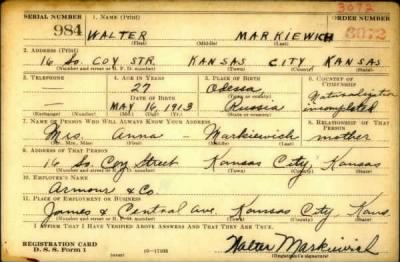 3072
SERIAL NUMBER 1. NAME (Print) ORDER NUMBER
984 WALTER MARKIEWICH 3072
(First) (Middle) (Last)
2. ADDRESS (Print)
16 So. COY STR. KANSAS CITY KANSAS
(Number and street or R. F. D. number) (Town) (County) (State)
3. TELEPHONE 4. AGE IN YEARS 5. PLACE OF BIRTH 6. COUNTRY OF CITIZENSHIP
— 27 Odessa Naturalization
DATE OF BIRTH (Town or county)
— MAY 16, 1913 Russia incompleted
(Exchange) (Number) (Mo.) (Day) (Yr.) (State or country)
7. NAME OF PERSON WHO WILL ALWAYS KNOW YOUR ADDRESS 8. RELATIONSHIP OF THAT PERSON
Mrs. Anna — Markiewich mother
(Mr., Mrs., Miss) (First) (Middle) (Last)
9. ADDRESS OF THAT PERSON
16 So. Coy Street Kansas City, Kansas
(Number and street or R. F. D. number) (Town) (County) (State)
10. EMPLOYER'S NAME
Armour & Co.
11. PLACE OF EMPLOYMENT OR BUSINESS
James & Central Ave. Kansas City, Kans.
(Number and street or R. F. D. number) (Town) (County) (State)
I AFFIRM THAT I HAVE VERIFIED ABOVE ANSWERS AND THAT THEY ARE TRUE.
REGISTRATION CARD
D. S. S. Form 1 Walter Markiewich
(Registrant's signature)